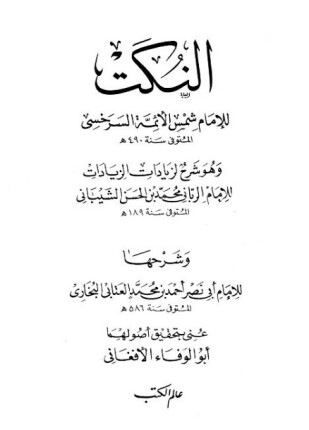 النكت
للإمام شمس الأئمة السرخسي
المتوفى سنة ٤٩٠ ه
وهو شرح لزيادات الزيادات
للإمام الرباني محمد بن الحسن الشيباني
المتوفى سنة ١٨٩ ه
وشرحها
للإمام أبي نصر أحمد بن محمد العتابي البخاري
المتوفى سنة ٥٨٦ ه
عني بتحقيق أصولهما
أبو الوفاء الأفغاني
عالم الكتب